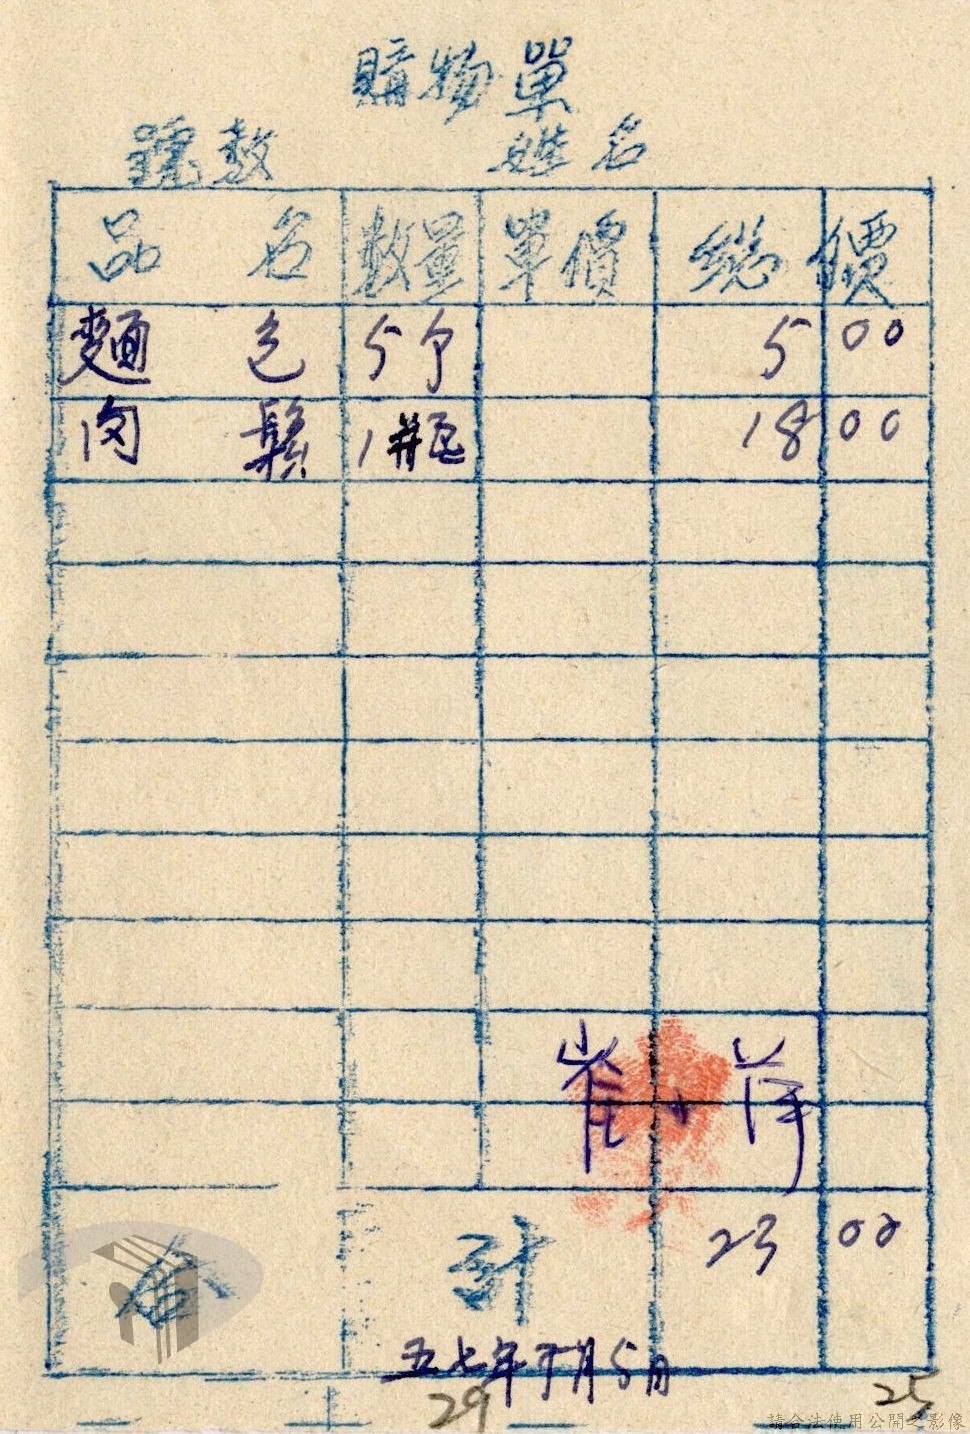 購物單
號數 姓名
品名 數量 單價 總價
麵包 5个 5 00
肉鬆 1瓶 18 00
崔小萍
合計 23 00
五七年 月5日
29 25
請合法使用公開之影像